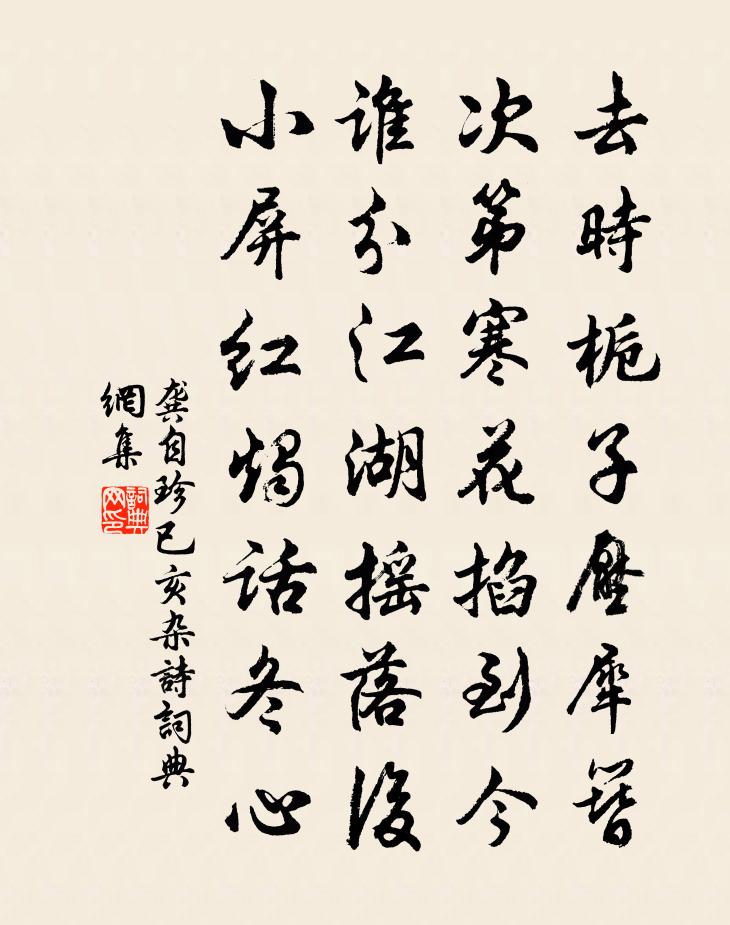 去時栀子壓犀簪
次第寒花掐到今
谁分江湖摇落後
小屏红烛话冬心
龔自珍已亥杂詩詞典
網集
詞典
网印